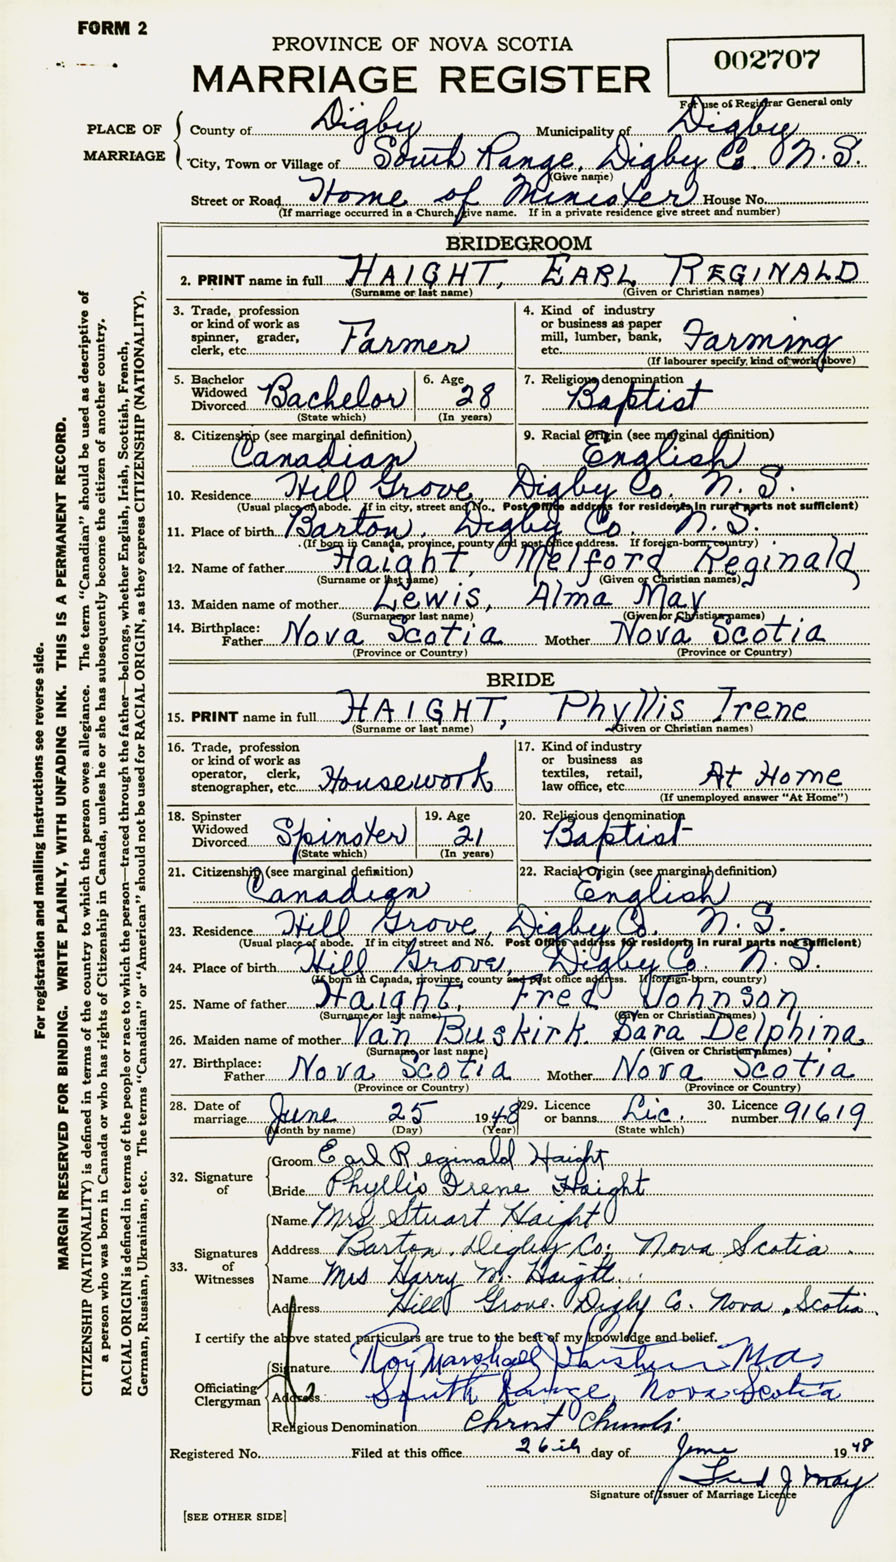 FORM 2
PROVINCE OF NOVA SCOTIA
MARRIAGE REGISTER
002707
For use of Registrar General only
PLACE OF MARRIAGE
County of Digby Municipality of Digby
City, Town or Village of South Range, Digby Co. N.S.
(Give name)
Street or Road Home of Minister House No.
(If marriage occurred in a Church, give name. If in a private residence give street and number)
BRIDEGROOM
2. PRINT name in full HAIGHT, EARL REGINALD
(Surname or last name) (Given or Christian names)
3. Trade, profession or kind of work as spinner, grader, clerk, etc. Farmer
4. Kind of industry or business as paper mill, lumber, bank, etc. Farming
(If labourer specify, kind of work above)
5. Bachelor Widowed Divorced Bachelor
(State which)
6. Age 28
(In years)
7. Religious denomination Baptist
8. Citizenship (see marginal definition) Canadian
9. Racial Origin (see marginal definition) English
10. Residence Hill Grove, Digby Co. N.S.
(Usual place of abode. If in city, street and No., Post Office address for residents in rural parts not sufficient)
11. Place of birth Barton, Digby Co. N.S.
(If born in Canada, province, county and post office address. If foreign-born, country)
12. Name of father Haight, Melford Reginald
(Surname or last name) (Given or Christian names)
13. Maiden name of mother Lewis, Alma May
(Surname or last name) (Given or Christian names)
14. Birthplace: Father Nova Scotia Mother Nova Scotia
(Province or Country) (Province or Country)
BRIDE
15. PRINT name in full HAIGHT, Phyllis Irene
(Surname or last name) (Given or Christian names)
16. Trade, profession or kind of work as operator, clerk, stenographer, etc. Housework
17. Kind of industry or business as textiles, retail, law office, etc. At Home
(If unemployed answer "At Home")
18. Spinster Widowed Divorced Spinster
(State which)
19. Age 21
(In years)
20. Religious denomination Baptist
21. Citizenship (see marginal definition) Canadian
22. Racial Origin (see marginal definition) English
23. Residence Hill Grove, Digby Co. N.S.
(Usual place of abode. If in city street and No. Post Office address for residents in rural parts not sufficient)
24. Place of birth Hill Grove, Digby Co. N.S.
(If born in Canada, province, county and post office address. If foreign-born, country)
25. Name of father Haight, Fred Johnson
(Surname or last name) (Given or Christian names)
26. Maiden name of mother Van Buskirk Sara Delphina
(Surname or last name) (Given or Christian names)
27. Birthplace: Father Nova Scotia Mother Nova Scotia
(Province or Country) (Province or Country)
28. Date of marriage June 25 1948
(Month by name) (Day) (Year)
29. Licence or banns Lic.
(State which)
30. Licence number 91619
32. Signature of
Groom Earl Reginald Haight
Bride Phyllis Irene Haight
33. Signatures of Witnesses
Name Mrs Stuart Haight
Address Barton, Digby Co; Nova Scotia
Name Mrs Harry M. Haight
Address Hill Grove. Digby Co. Nova Scotia
I certify the above stated particulars are true to the best of my knowledge and belief.
Officiating Clergyman
Signature Roy Marshall
Address South Range, Nova Scotia
Religious Denomination Christ Church
Registered No. Filed at this office 26th day of June 1948
Fred J May
Signature of Issuer of Marriage Licence
[SEE OTHER SIDE]
For registration and mailing instructions see reverse side.
MARGIN RESERVED FOR BINDING. WRITE PLAINLY, WITH UNFADING INK. THIS IS A PERMANENT RECORD.
CITIZENSHIP (NATIONALITY) is defined in terms of the country to which the person owes allegiance. The term "Canadian" should be used as descriptive of
a person who was born in Canada or who has rights of Citizenship in Canada, unless he or she has subsequently become the citizen of another country.
RACIAL ORIGIN is defined in terms of the people or race to which the person—traced through the father—belongs, whether English, Irish, Scottish, French,
German, Russian, Ukrainian, etc. The terms "Canadian" or "American" should not be used for RACIAL ORIGIN, as they express CITIZENSHIP (NATIONALITY).